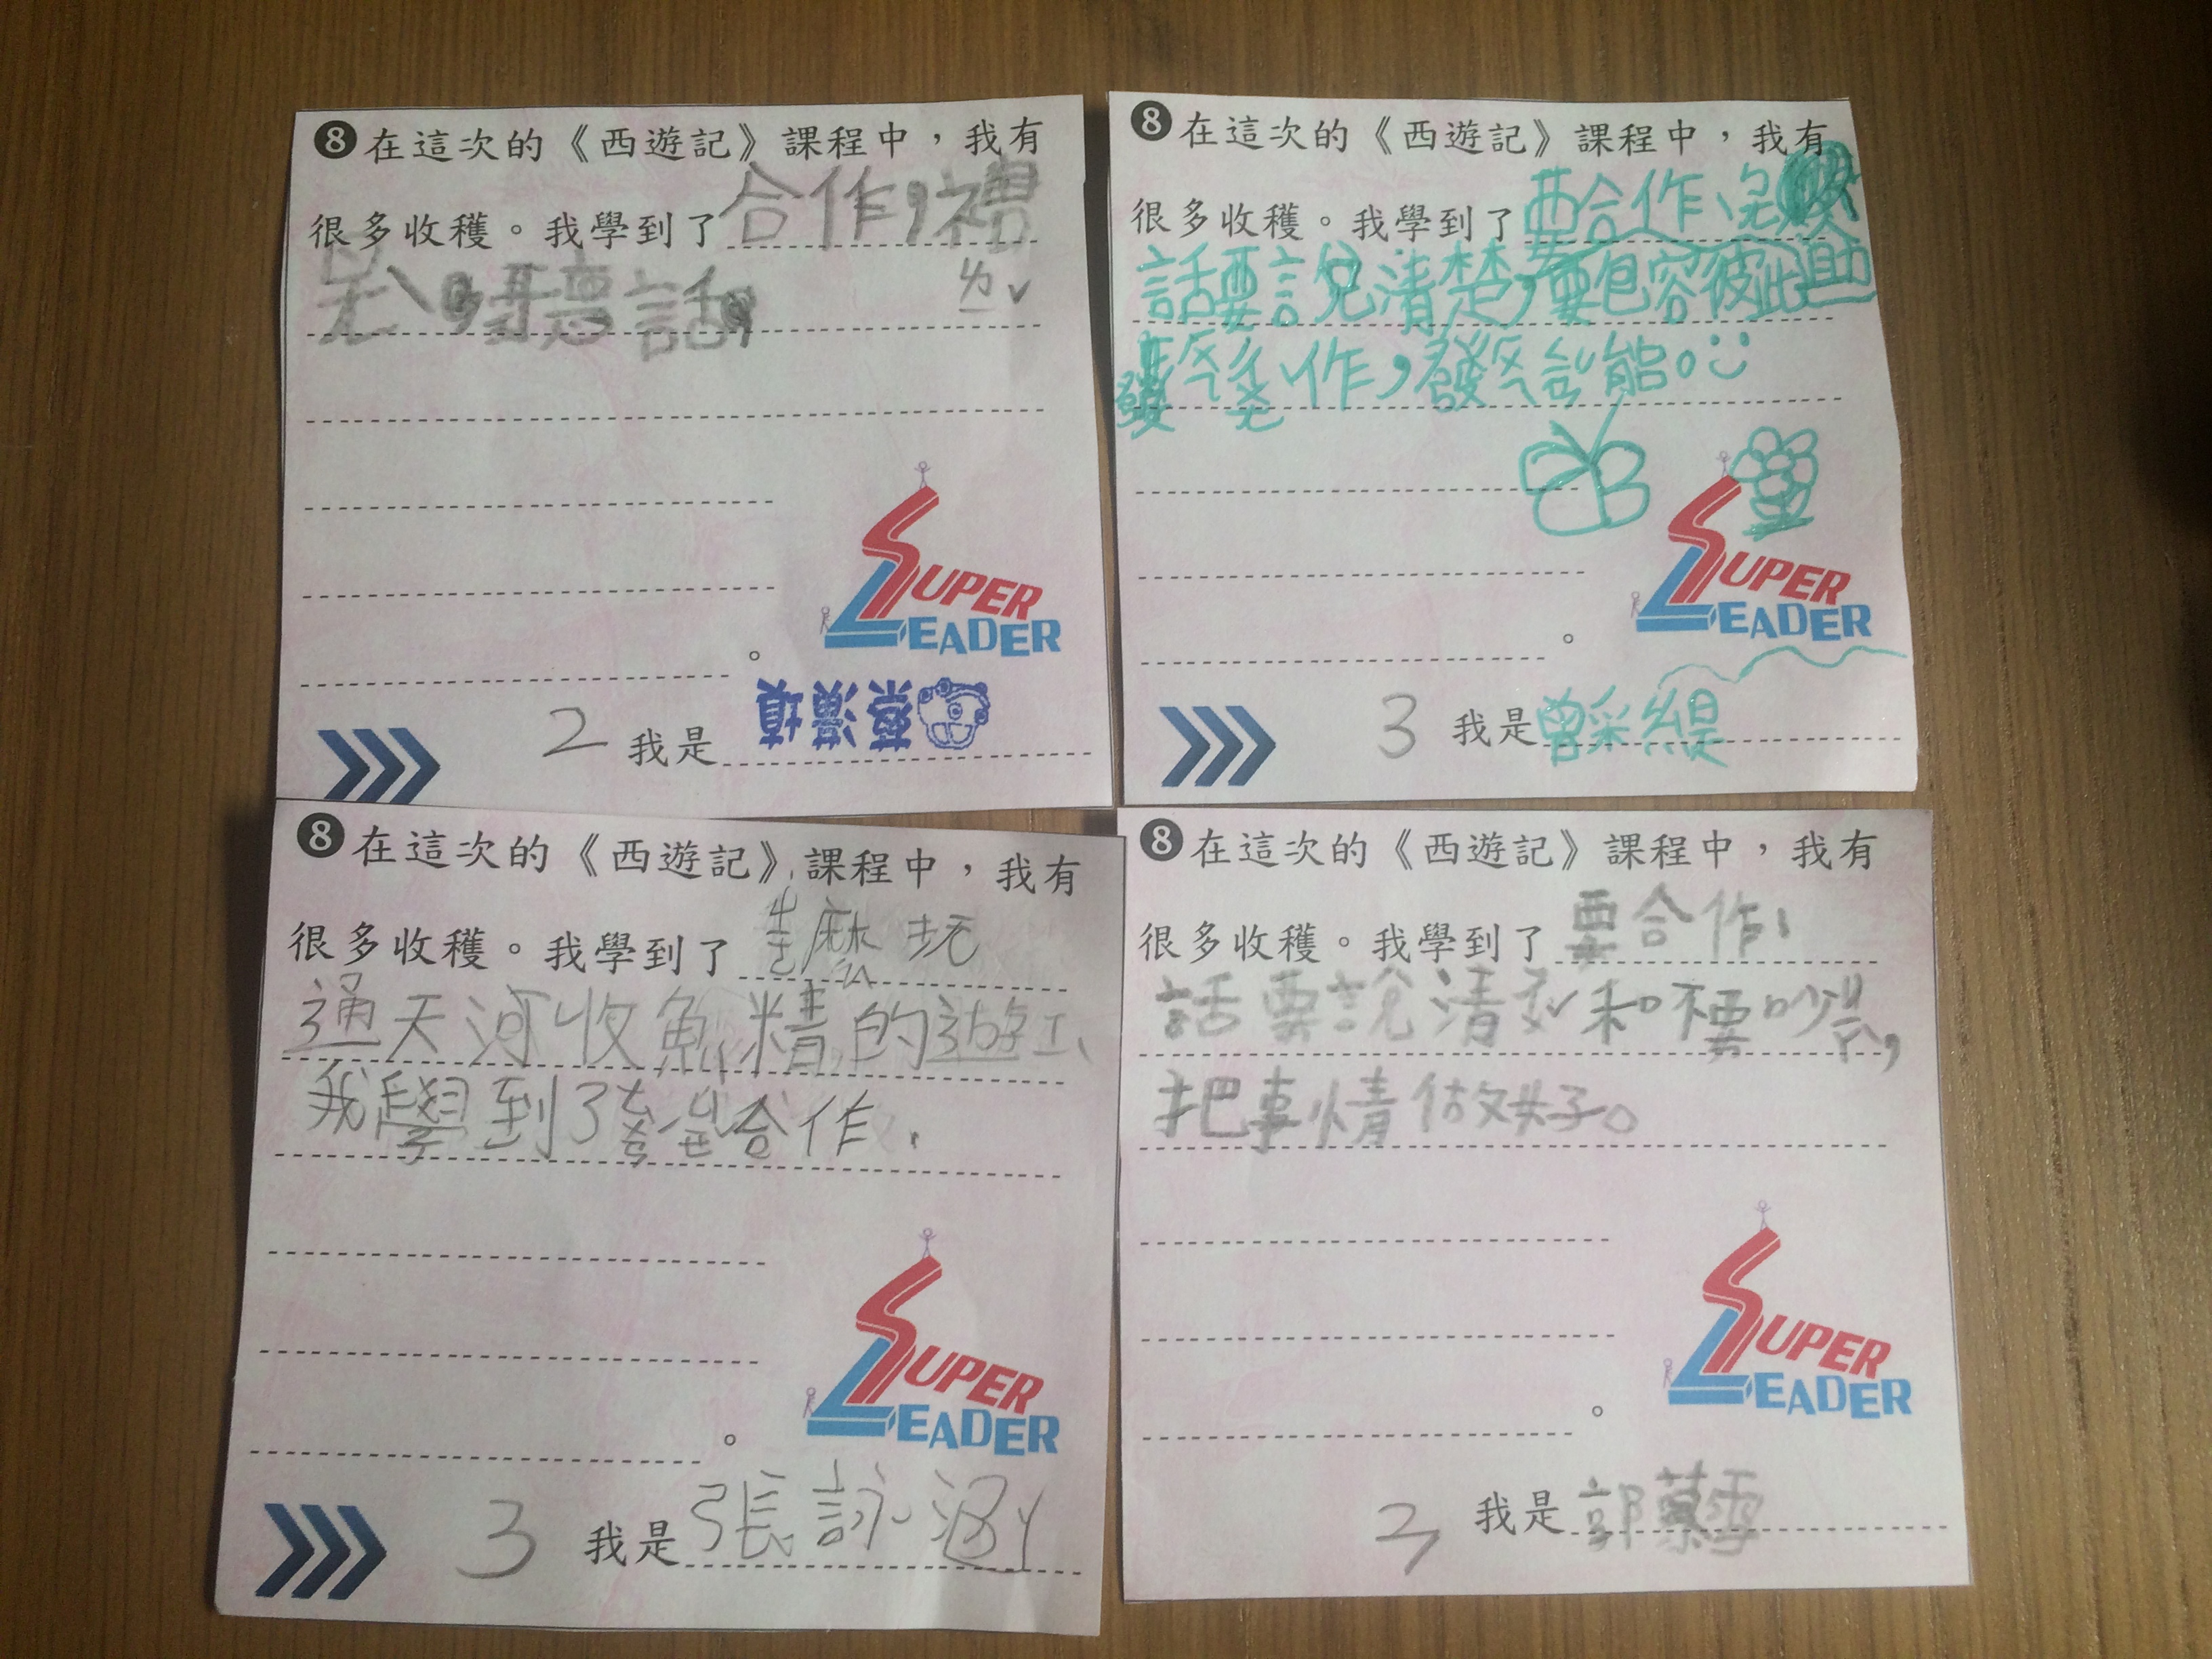 ❽在這次的《西遊記》課程中，我有
很多收穫。我學到了合作，禮
ㄉㄞˇ
聽話
SUPER
LEADER
。
2 我是
❽在這次的《西遊記》課程中，我有
很多收穫。我學到了要合作、
話要說清楚，要包容彼此
作，發 能。
SUPER
LEADER
。
3 我是曾采緹
❽在這次的《西遊記》課程中，我有
很多收穫。我學到了 麼玩
通天河收魚精的遊
我學到了 合作
SUPER
LEADER
。
3 我是張詠涵
❽在這次的《西遊記》課程中，我有
很多收穫。我學到了要合作、
話要說清 和不要吵架，
把事情做好。
SUPER
LEADER
。
2 我是郭